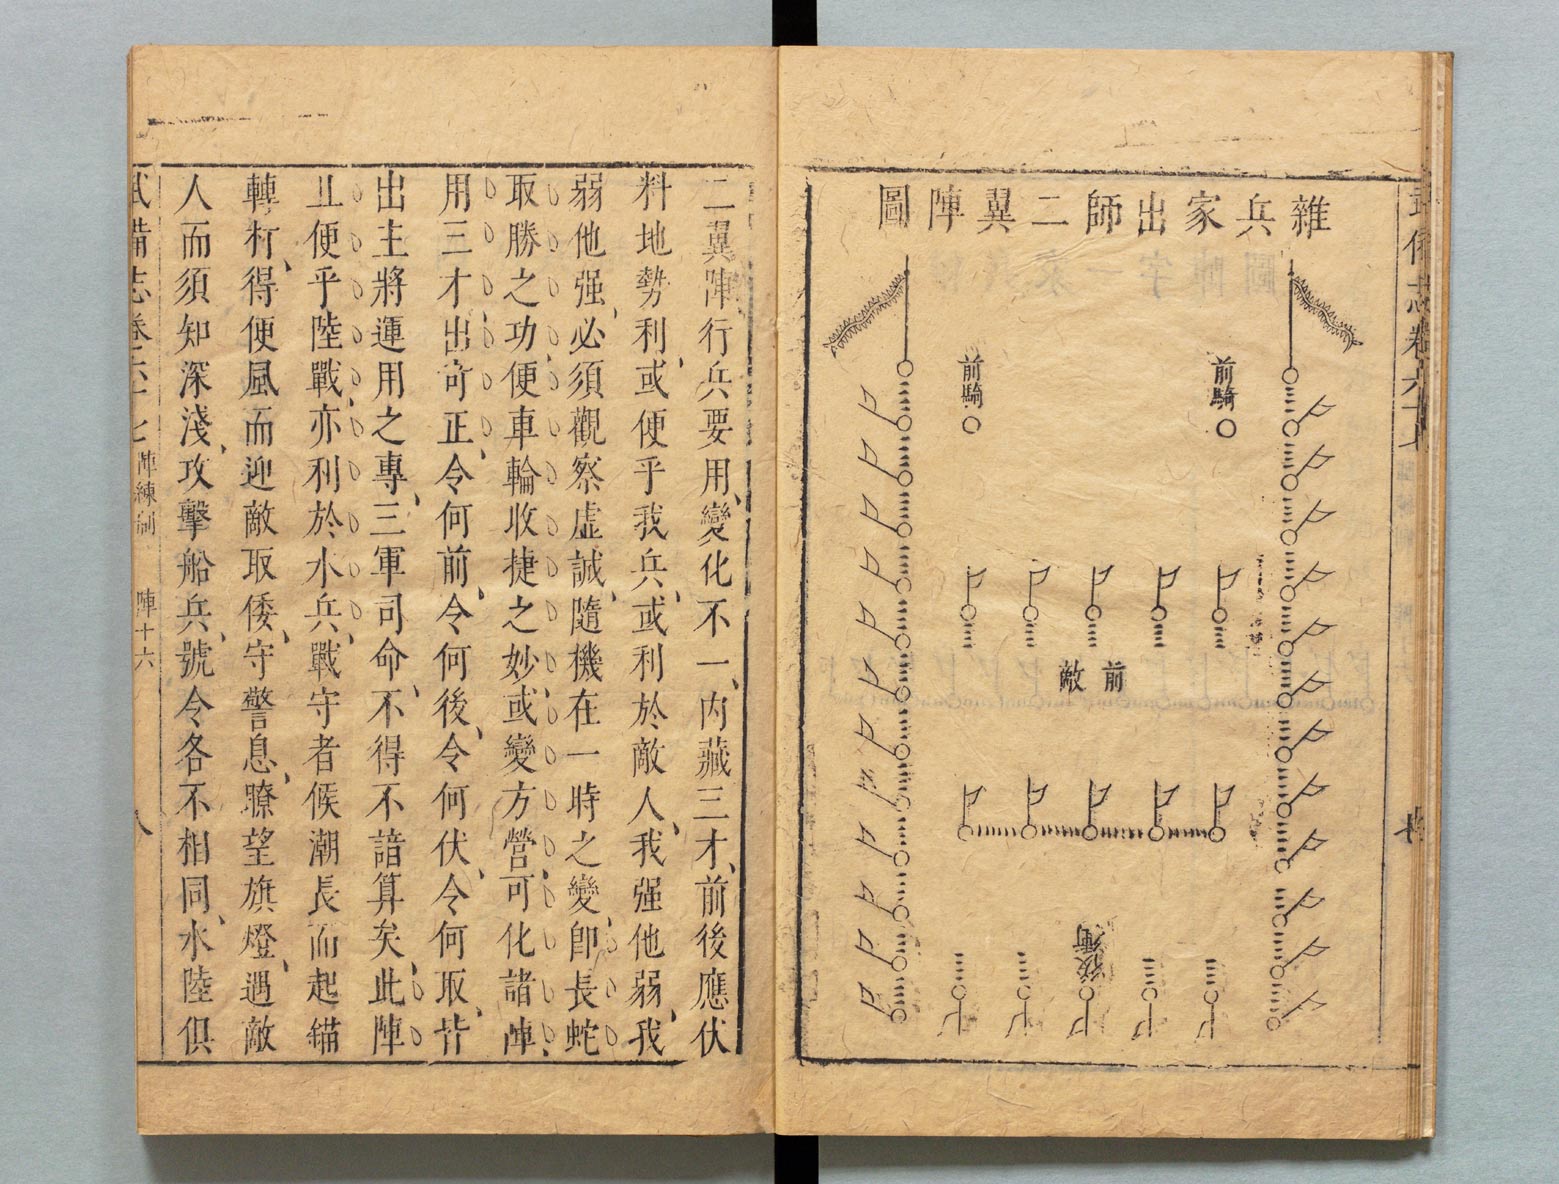 雜兵家出師二翼陣圖
前騎
前騎
前敵
後衛
二翼陣行兵要用變化不一內藏三才前後應伏
料地勢利或便乎我兵或利於敵人我强他弱我
弱他强必須觀察虛誠隨機在一時之變卽長蛇
取勝之功便車輪收捷之妙或變方營可化諸陣
用三才出奇正令何前令何後令何伏令何取皆
出主將運用之專三軍司命不得不諳算矣此陣
且便乎陸戰亦利於水兵戰守者候潮長而起錨
轉杇得便風而迎敵取倭守警息瞭望旗燈遇敵
人而須知深淺攻擊船兵號令各不相同水陸俱
武備志卷六十七
陣練制
陣十六
八